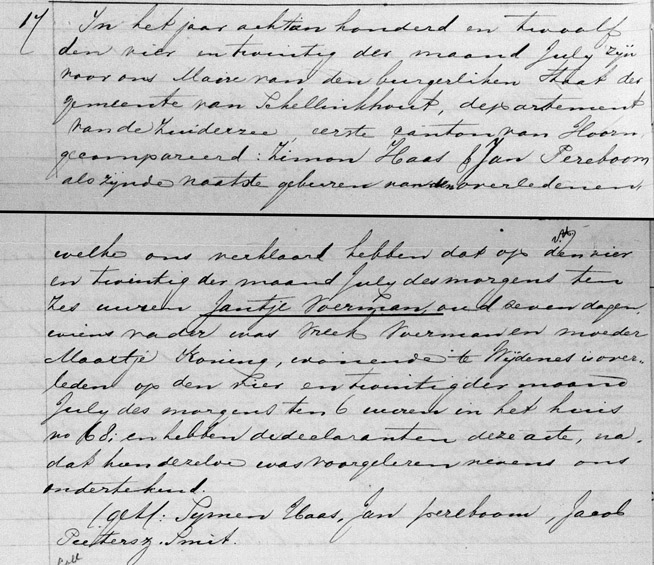 17 In het jaar achtien honderd en twaalf
den vier en twintig der maand July zijn
voor ons Maire van den burgerliken Staat der
gemeente van Schellinkhout, departement
van de Zuiderzee, eerste canton van Hoorn
gecompareerd: Zimon Haas & Jan Pereboom
als zijnde naatste gebuuren van den overledenen,
welke ons verklaard hebben dat op den vier
en twintig der maand July des morgens ten
zes uuren Jantje Voerman, oud seven dagen,
wiens vader was Vreek Voerman en moeder
Maartje Koning, wonende te Wijdenes is over-
leden op den vier en twintig der maand
July des morgens ten 6 uuren in het huis
no 68; en hebben de declaranten deze acte, na
dat hun dezelve was voorgelezen nevens ons
ondertekend.
(get): Symen Haas, Jan pereboom, Jacob
Pietersz. Smit.